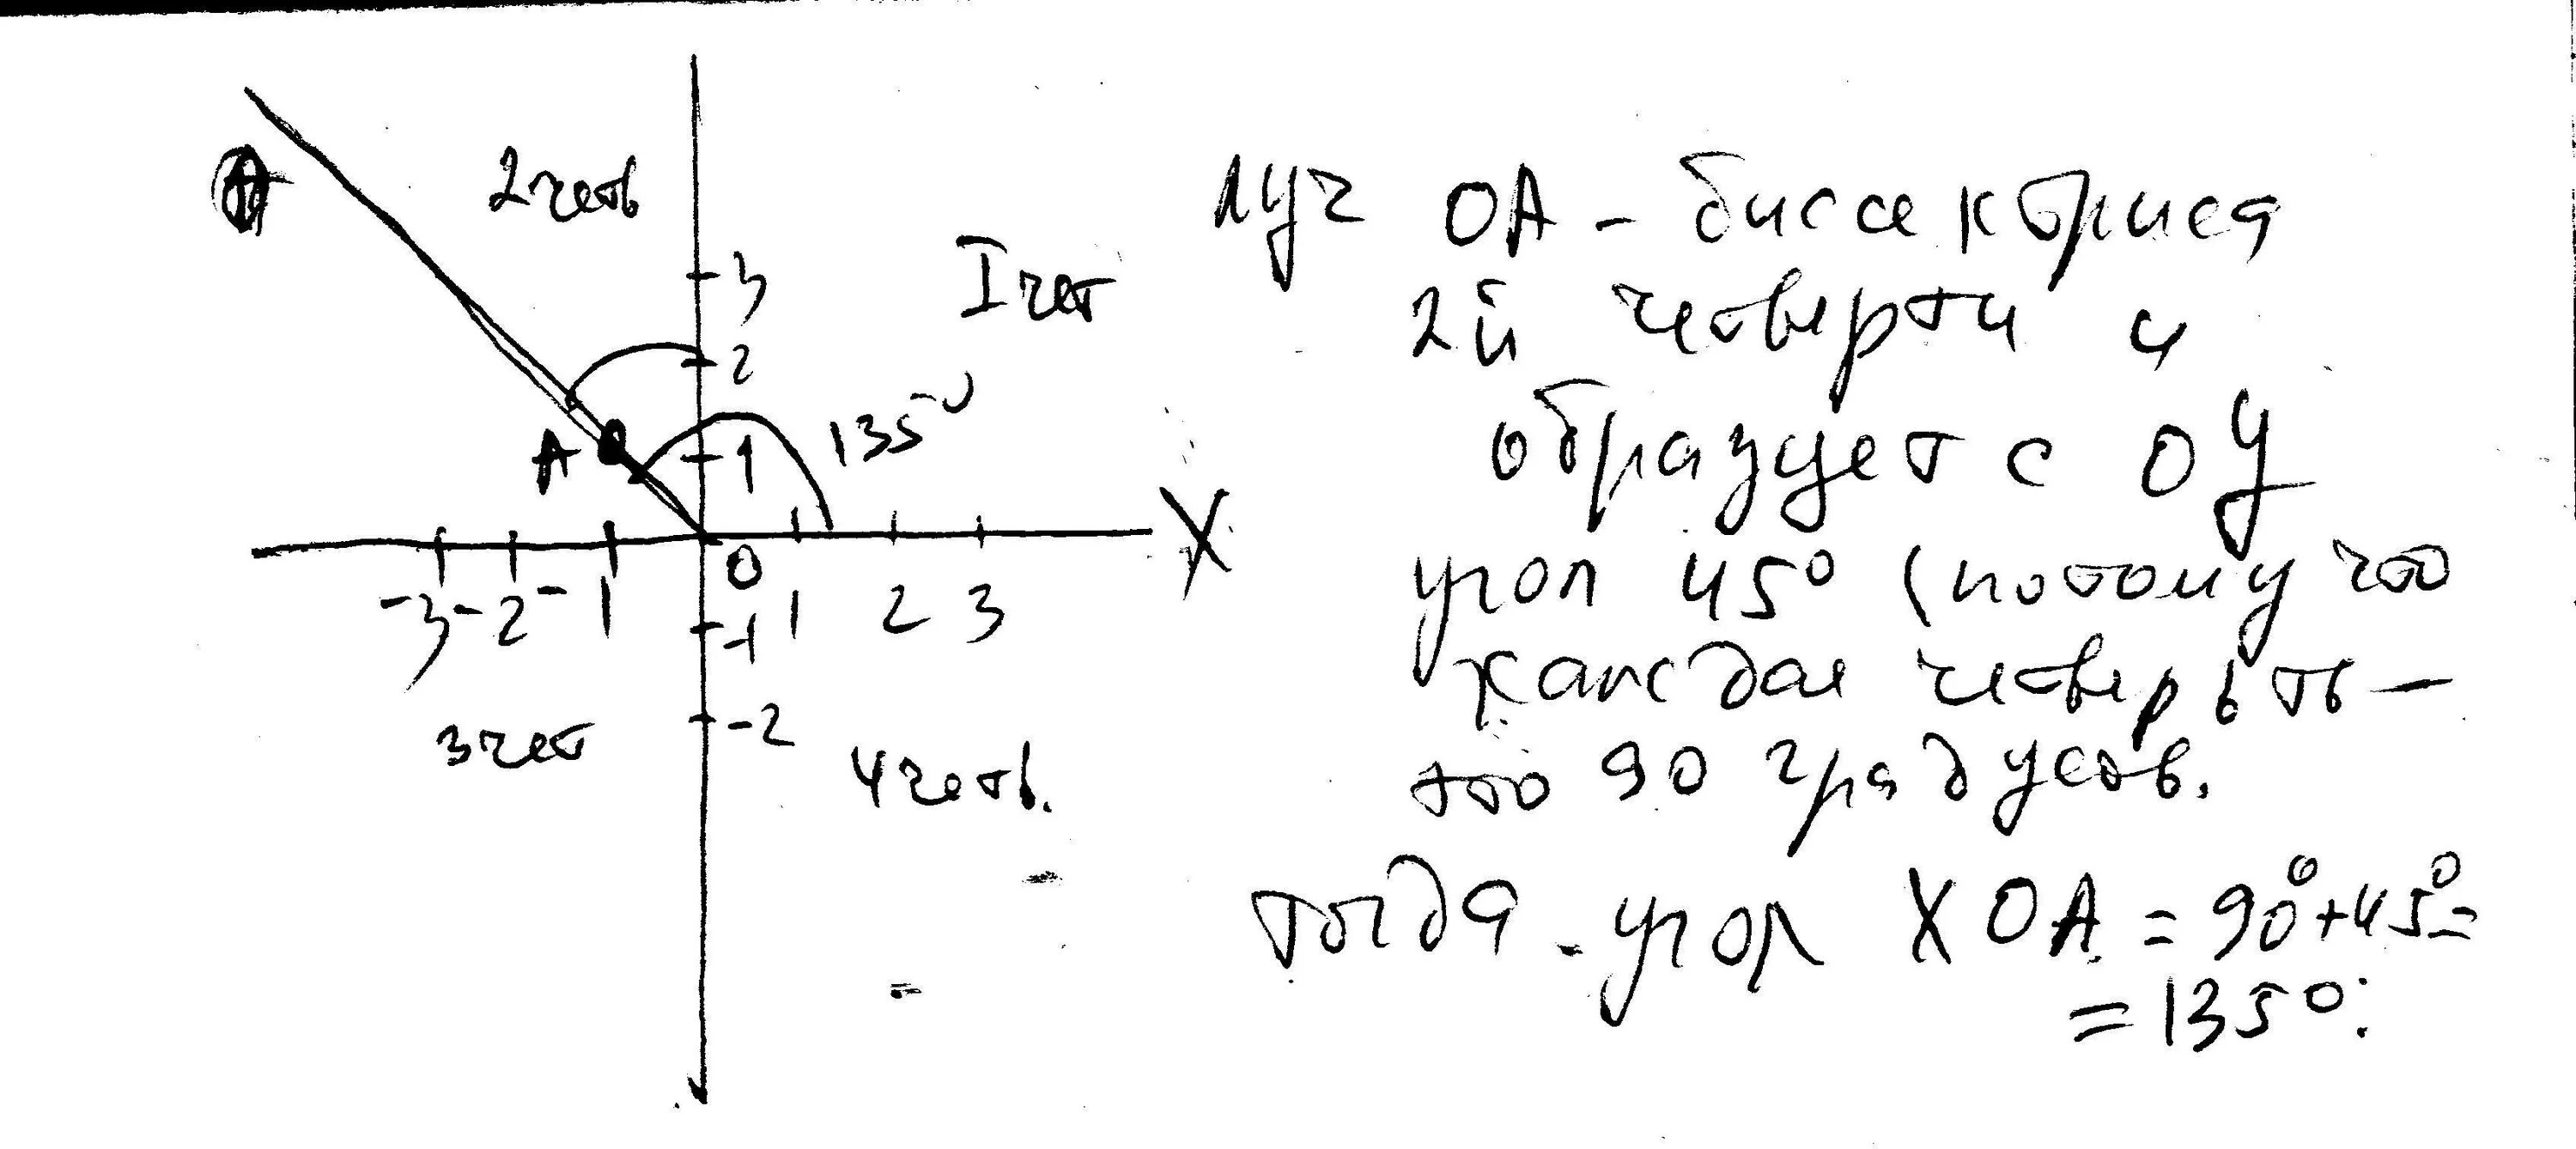 2 четв
3
I чет
2
135°
А
1
X
0
-3 -2 -1
1 2 3
-1
-2
3 чет
4 четв.
луч ОА - биссектриса
2й четверти и
образует с ОУ
угол 45° (потому что
каждая четверьть —
это 90 градусов.
тогда угол ХОА = 90°+45°=
= 135°.